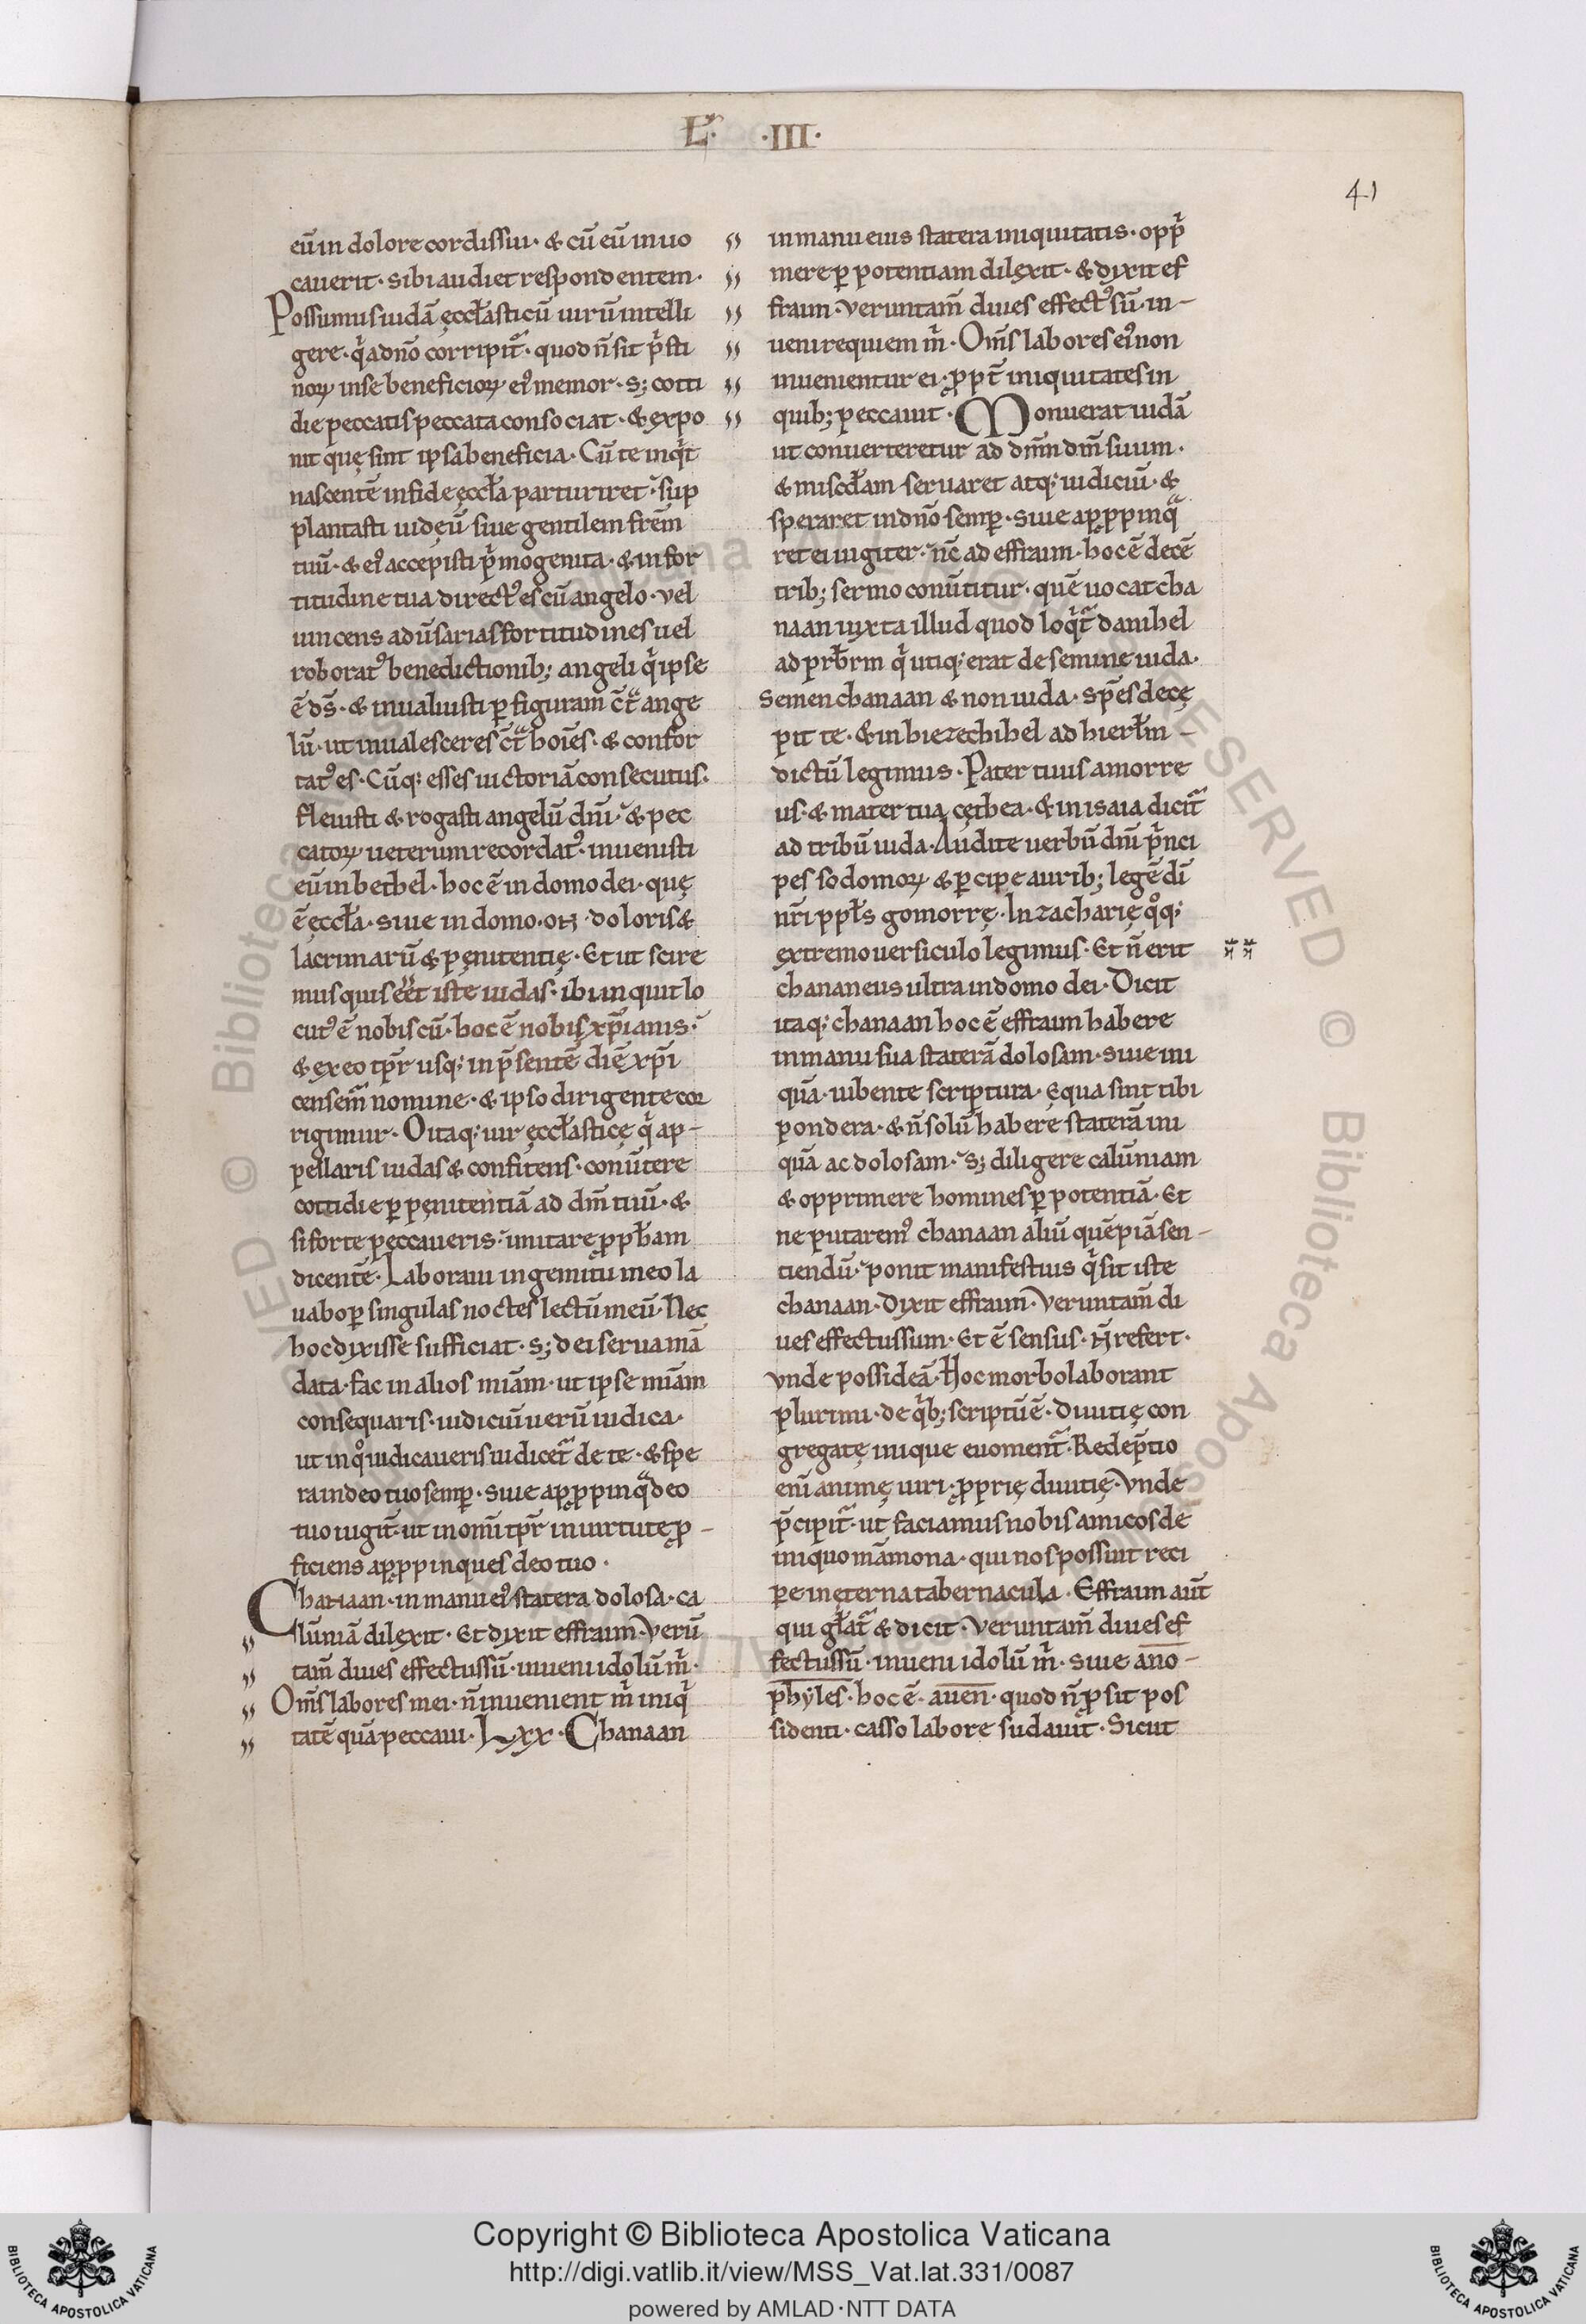 L̃. ·III·
41
eū in dolore cordis sui· & cū eū inuo
cauerit· sibi audiet respondentem·
Possumus iudā ęccl̃asticū uirū intelli
gere· q̓ adn̄o corripit᷑· quod n̄ sit p̓sti
noꝝ in se beneficioꝝ ei᷒ memor· s; cotti
die peccatis peccata consociat· & expo
nit quę sint ipsa beneficia· Cū te inq̓t
nascentē in fide ęccl̃a parturiret· sup
plantasti iudeū siue gentilem frēm
tuū· & ei᷒ accepisti p̓mogenita· & in for
titudine tua direct᷒ es cū angelo· vel
uincens adūsarias fortitudines uel
roborat᷒ benedictionib; angeli q̓ ipse
ē dš· & inualuisti ꝑ figuram c̄tᷓ ange
lū· ut inualesceres c̄tᷓ hoīes· & confor
tat᷒ es· Cūq; esses uictoriā consecutus·
fleuisti & rogasti angelū dn̄i· & pec
catoꝝ ueterum recordat᷒· inuenisti
eū in bethel· hoc ē in domo dei· quę
ē ęccl̃a· siue in domo· on· doloris &
lacrimarū & pęnitentię· Et ut scire
mus quis eēt iste iudas· ibi inquit lo
cut᷒ ē nobiscū· hoc ē nobis xp̄ianis·
& ex eo tp̄r usq; in p̄sentē diē xp̄i
censem᷑ nomine· & ipso dirigente cor
rigimur· O itaq; uir ęccl̃asticę q̓ ap-
pellaris iudas & confitens· conūtere
cottidie ꝑ pęnitentiā ad dm̄ tuū· &
si forte peccaueris· imitare ꝓph̃am
dicentē· Laboraui in gemitu meo la
uabo ꝑ singulas noctes lectū meū· Nec
hoc dixisse sufficiat· s; dei serua mā
data· fac in alios miām· ut ipse miām
consequaris· iudiciū uerū iudica·
ut in q̊ iudicaueris iudicet᷑ de te· & spe
ra in deo tuo semꝑ· siue apꝓpinqᷓ deo
tuo iugit̄· ut in omī tp̄r in uirtute ꝓ-
ficiens apꝓpinques deo tuo·
Chanaan· in manu ei᷒ statera dolosa· ca
lūniā dilexit· Et dixit effraim· Verū
tam̄ diues effectus sū· inueni idolū m̓·
Om̄s labores mei· n̄ inuenient m̓ iniq̓
tatē quā peccaui· Lxx· Chanaan
in manu eius statera iniquitatis· opp̓
mere ꝑ potentiam dilexit· & dixit ef
fraim· Veruntam̄ diues effect᷒ sū· in-
ueni requiem m̓· Om̄s labores ei᷒ non
inuenientur ei· ꝓpt̄ iniquitates in
quib; peccauit· Monuerat iudā
ut conuerteretur ad dn̄m dm̄ suum·
& miscd̃am seruaret atq; iudiciū· &
speraret in dn̄o semꝑ· siue apꝓpinqᷓ
ret ei iugiter· n̄c ad effraim· hoc ē decē
trib; sermo conūtitur· quē uocat cha
naan iuxta illud quod loq̓t᷑ danihel
ad prb̃rm q̓ utiq; erat de semine iuda·
Semen chanaan & non iuda· sp̄es decę
pit te· & in hiezechihel ad hierl̃m -
dictū legimus· Pater tuus amorre
us· & mater tua cęthea· & in isaia dicit᷑
ad tribū iuda· Audite uerbū dn̄i p̓nci
pes sodomoꝝ & ꝑcipe aurib; legē dī
nr̄i ppl̃s gomorrę· In zacharię q̊q;
extremo uersiculo legimus· Et n̄ erit
chananeus ultra in domo dei· Dicit
itaq; chanaan hoc ē effraim habere
in manu sua staterā dolosam· siue ini
quā· iubente scriptura· Equa sint tibi
pondera· & n̄ solū habere staterā ini
quā ac dolosam· s; diligere calūniam
& opprimere homines ꝑ potentiā· Et
ne putarem᷒ chanaan aliū quēpiā sen-
tiendū· ponit manifestius q̓ sit iste
chanaan· Dixit effraim· Veruntam̄ di
ues effectus sum· Et ē sensus· N̄ refert·
vnde possideā· Hoc morbo laborant
plurimi· de q̓b; scriptū ē· Diuitię con
gregatę inique euoment᷑· Redēptio
enī animę uiri· ꝓprię diuitię· Vnde
p̄cipit᷑· ut faciamus nobis amicos de
iniquo māmona· qui nos possint reci
pere in ęterna tabernacula· Effraim aūt
qui gl̃at᷑ & dicit· Veruntam̄ diues ef
fectus sū· inueni idolū m̓· siue ano-
phyles· hoc ē· auen· quod n̄ ꝓsit pos
sidenti· casso labore sudauit· Sicut
Copyright © Biblioteca Apostolica Vaticana
http://digi.vatlib.it/view/MSS_Vat.lat.331/0087
powered by AMLAD·NTT DATA